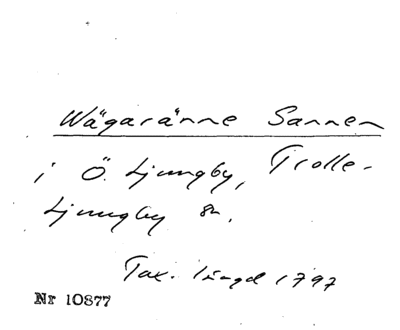 Wägaränne Sannen
i Ö. Ljungby, Trolle-
Ljungby sn.
Tax. längd 1797
Nr 10877